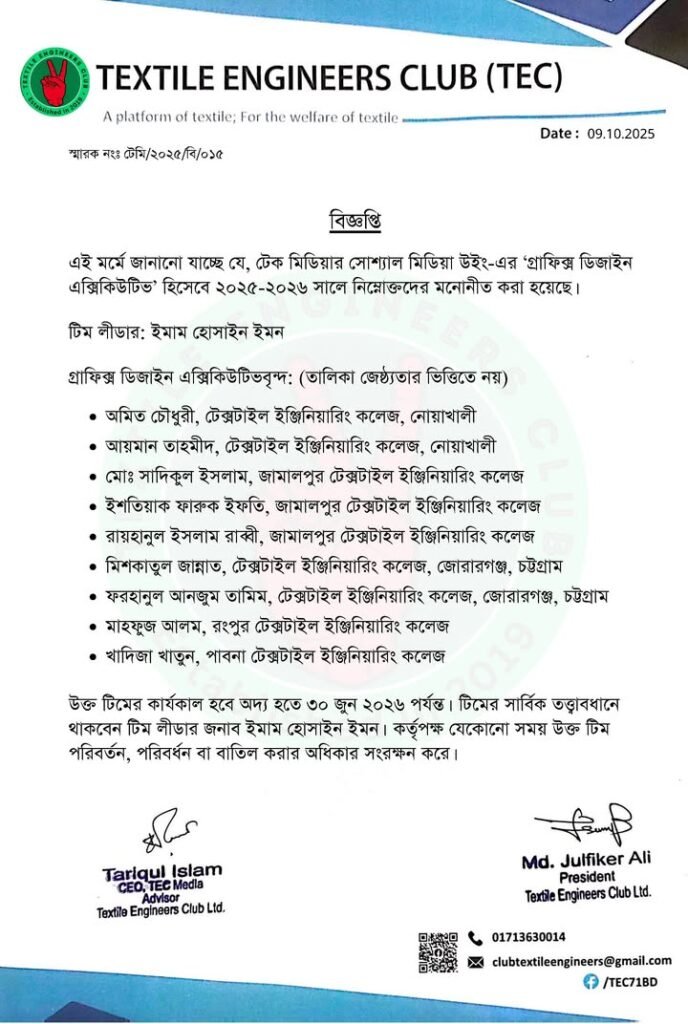 TEXTILE ENGINEERS CLUB (TEC)
A platform of textile; For the welfare of textile
Date : 09.10.2025
স্মারক নংঃ টেমি/২০২৫/বি/০১৫
বিজ্ঞপ্তি
এই মর্মে জানানো যাচ্ছে যে, টেক মিডিয়ার সোশ্যাল মিডিয়া উইং-এর ‘গ্রাফিক্স ডিজাইন
এক্সিকিউটিভ’ হিসেবে ২০২৫-২০২৬ সালে নিম্নোক্তদের মনোনীত করা হয়েছে।
টিম লীডার: ইমাম হোসাইন ইমন
গ্রাফিক্স ডিজাইন এক্সিকিউটিভবৃন্দ: (তালিকা জেষ্ঠ্যতার ভিত্তিতে নয়)
• অমিত চৌধুরী, টেক্সটাইল ইঞ্জিনিয়ারিং কলেজ, নোয়াখালী
• আয়মান তাহমীদ, টেক্সটাইল ইঞ্জিনিয়ারিং কলেজ, নোয়াখালী
• মোঃ সাদিকুল ইসলাম, জামালপুর টেক্সটাইল ইঞ্জিনিয়ারিং কলেজ
• ইশতিয়াক ফারুক ইফতি, জামালপুর টেক্সটাইল ইঞ্জিনিয়ারিং কলেজ
• রায়হানুল ইসলাম রাব্বী, জামালপুর টেক্সটাইল ইঞ্জিনিয়ারিং কলেজ
• মিশকাতুল জান্নাত, টেক্সটাইল ইঞ্জিনিয়ারিং কলেজ, জোরারগঞ্জ, চট্টগ্রাম
• ফরহানুল আনজুম তামিম, টেক্সটাইল ইঞ্জিনিয়ারিং কলেজ, জোরারগঞ্জ, চট্টগ্রাম
• মাহফুজ আলম, রংপুর টেক্সটাইল ইঞ্জিনিয়ারিং কলেজ
• খাদিজা খাতুন, পাবনা টেক্সটাইল ইঞ্জিনিয়ারিং কলেজ
উক্ত টিমের কার্যকাল হবে অদ্য হতে ৩০ জুন ২০২৬ পর্যন্ত। টিমের সার্বিক তত্ত্বাবধানে
থাকবেন টিম লীডার জনাব ইমাম হোসাইন ইমন। কর্তৃপক্ষ যেকোনো সময় উক্ত টিম
পরিবর্তন, পরিবর্ধন বা বাতিল করার অধিকার সংরক্ষন করে।
Tariqul Islam
CEO, TEC Media
Advisor
Textile Engineers Club Ltd.
Md. Julfiker Ali
President
Textile Engineers Club Ltd.
01713630014
clubtextileengineers@gmail.com
/TEC71BD